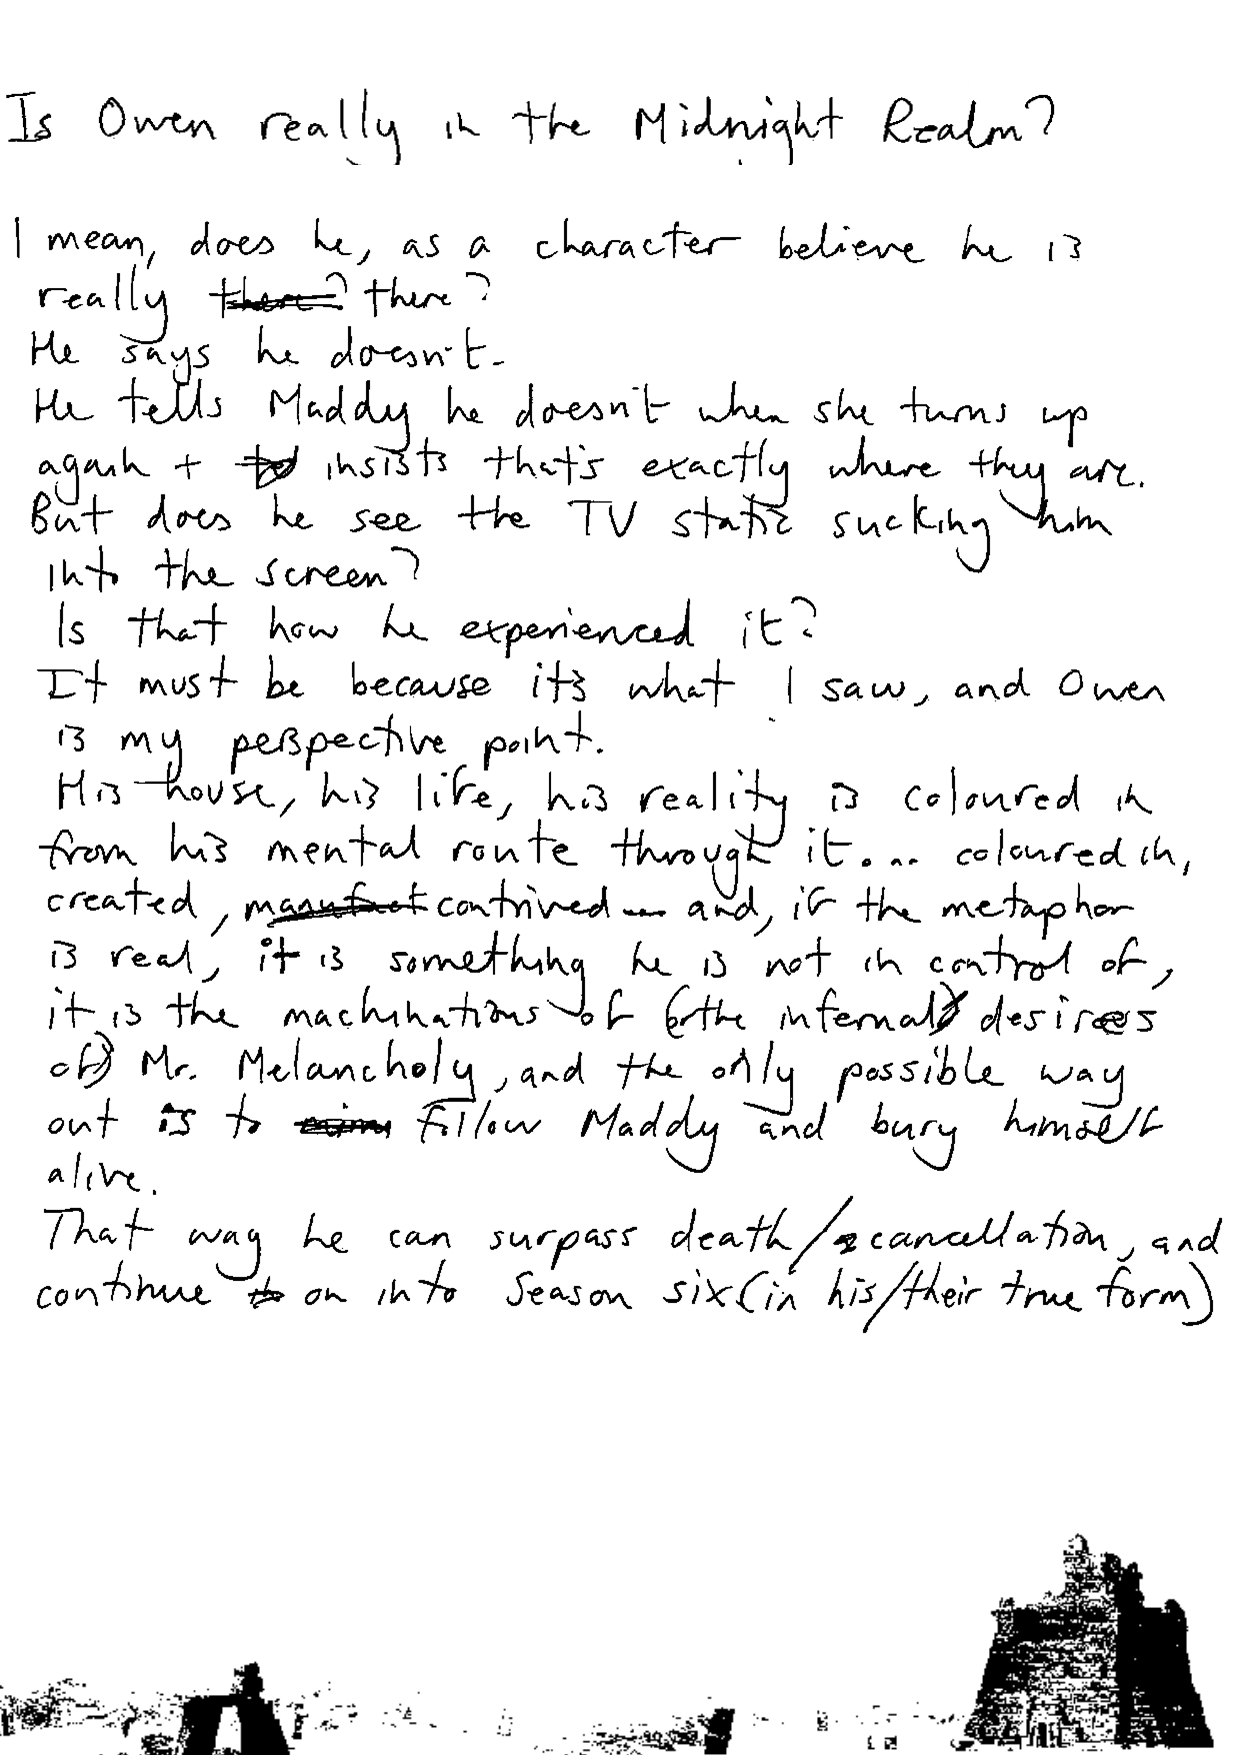 Is Owen really in the Midnight Realm?
I mean, does he, as a character believe he is
really there? there?
He says he doesn't.
He tells Maddy he doesn't when she turns up
again + insists that's exactly where they are.
But does he see the TV static sucking him
into the screen?
Is that how he experienced it?
It must be because it's what I saw, and Owen
is my perspective point.
His house, his life, his reality is coloured in
from his mental route through it... coloured in,
created, manufact contrived... and, if the metaphor
is real, it is something he is not in control of,
it is the machinations of (the infernal) desires
of) Mr. Melancholy, and the only possible way
out is to follow Maddy and bury himself
alive.
That way he can surpass death/cancellation, and
continue to on into Season six (in his/their true form)